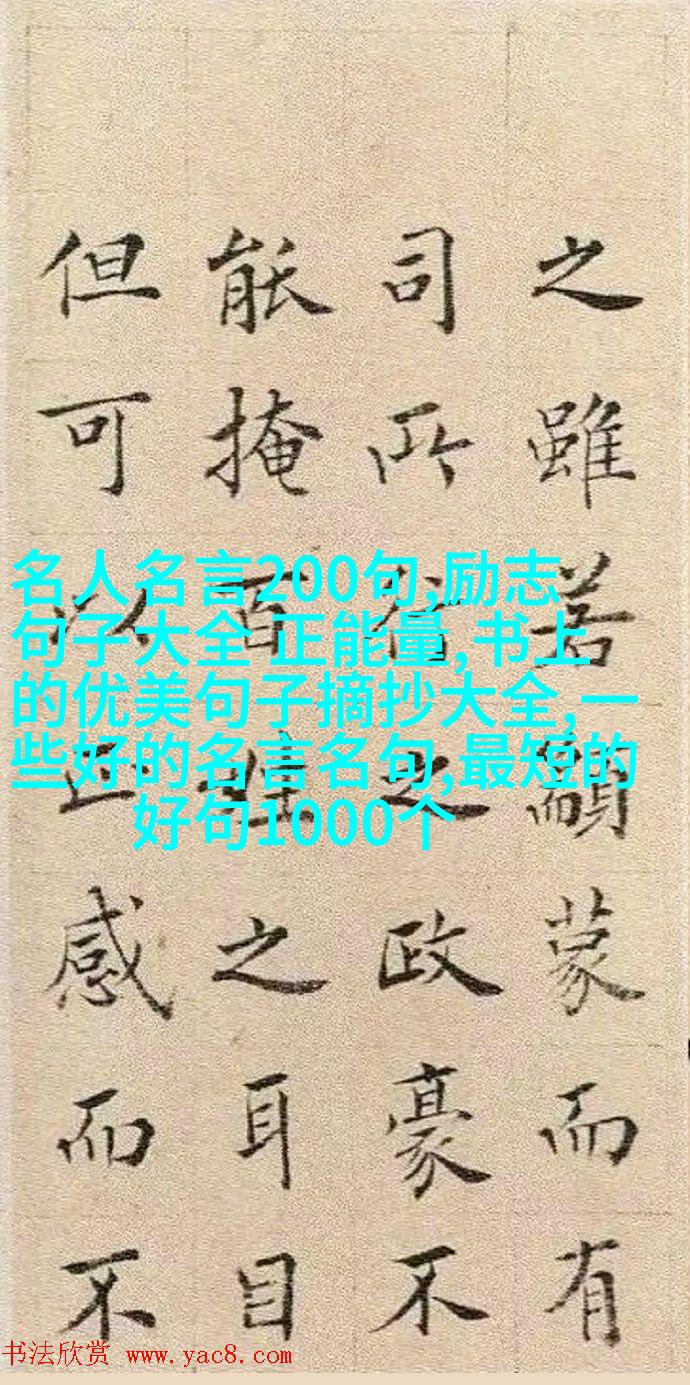 之雖若顓蒙而有
司所之政豪不
能掩百姓之耳目
但可以正感而不
名人名言200句,励志
句子大全 正能量,书上
的优美句子摘抄大全,一
些好的名言名句,最短的
好句1000个
书法欣赏 www.yac8.com